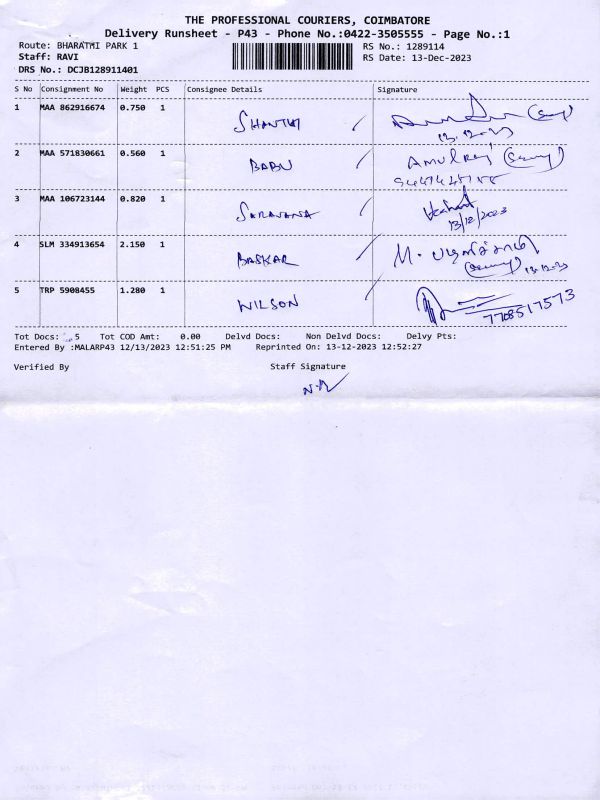 THE PROFESSIONAL COURIERS, COIMBATORE
Delivery Runsheet - P43 - Phone No.:0422-3505555 - Page No.:1
Route: BHARATHI PARK 1 RS No.: 1289114
Staff: RAVI RS Date: 13-Dec-2023
DRS No.: DCJB128911401
S No Consignment No Weight PCS Consignee Details Signature
1 MAA 862916674 0.750 1 SHANTHI
13.12.23
2 MAA 571830661 0.560 1 BABU Amulraj
3 MAA 106723144 0.820 1 SARAVANA
13/12/2023
4 SLM 334913654 2.150 1 BASKAR M.
13.12.23
5 TRP 5908455 1.280 1 WILSON
7708517573
Tot Docs: 5 Tot COD Amt: 0.00 Delvd Docs: Non Delvd Docs: Delvy Pts:
Entered By :MALARP43 12/13/2023 12:51:25 PM Reprinted On: 13-12-2023 12:52:27
Verified By Staff Signature